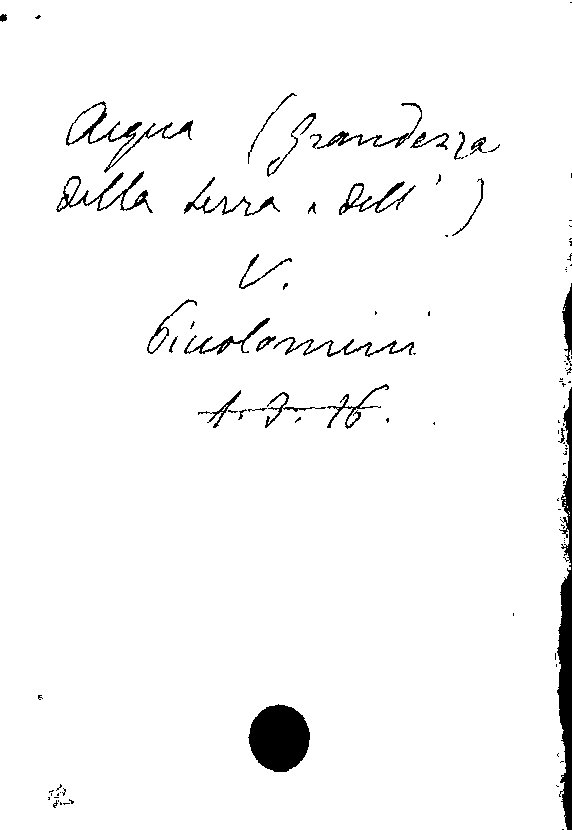 Acqua (Grandezza
della terra e dell')
V.
Piccolomini
1. J. 16.